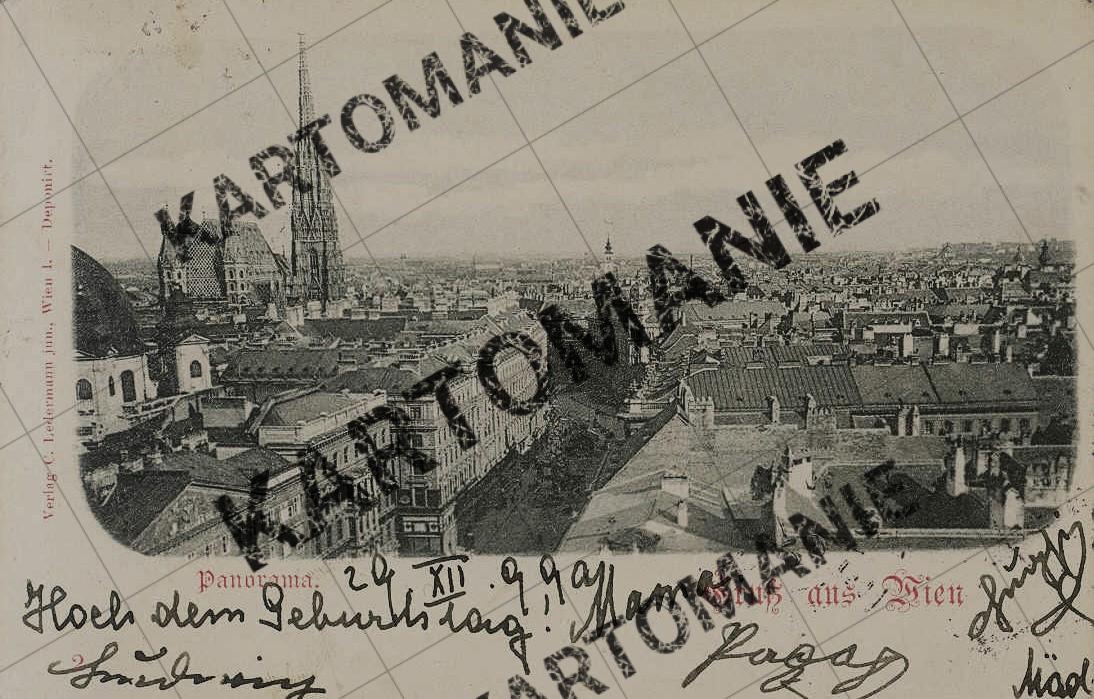 KARTOMANIE
KARTOMANIE
KARTOMANIE
KARTOMANIE
Verlag C. Ledermann jun., Wien I. — Deponirt.
Panorama.
Gruß aus Wien
29 XII. 99
Hoch dem Geburtstag! Mama
Ludwig
Mäd